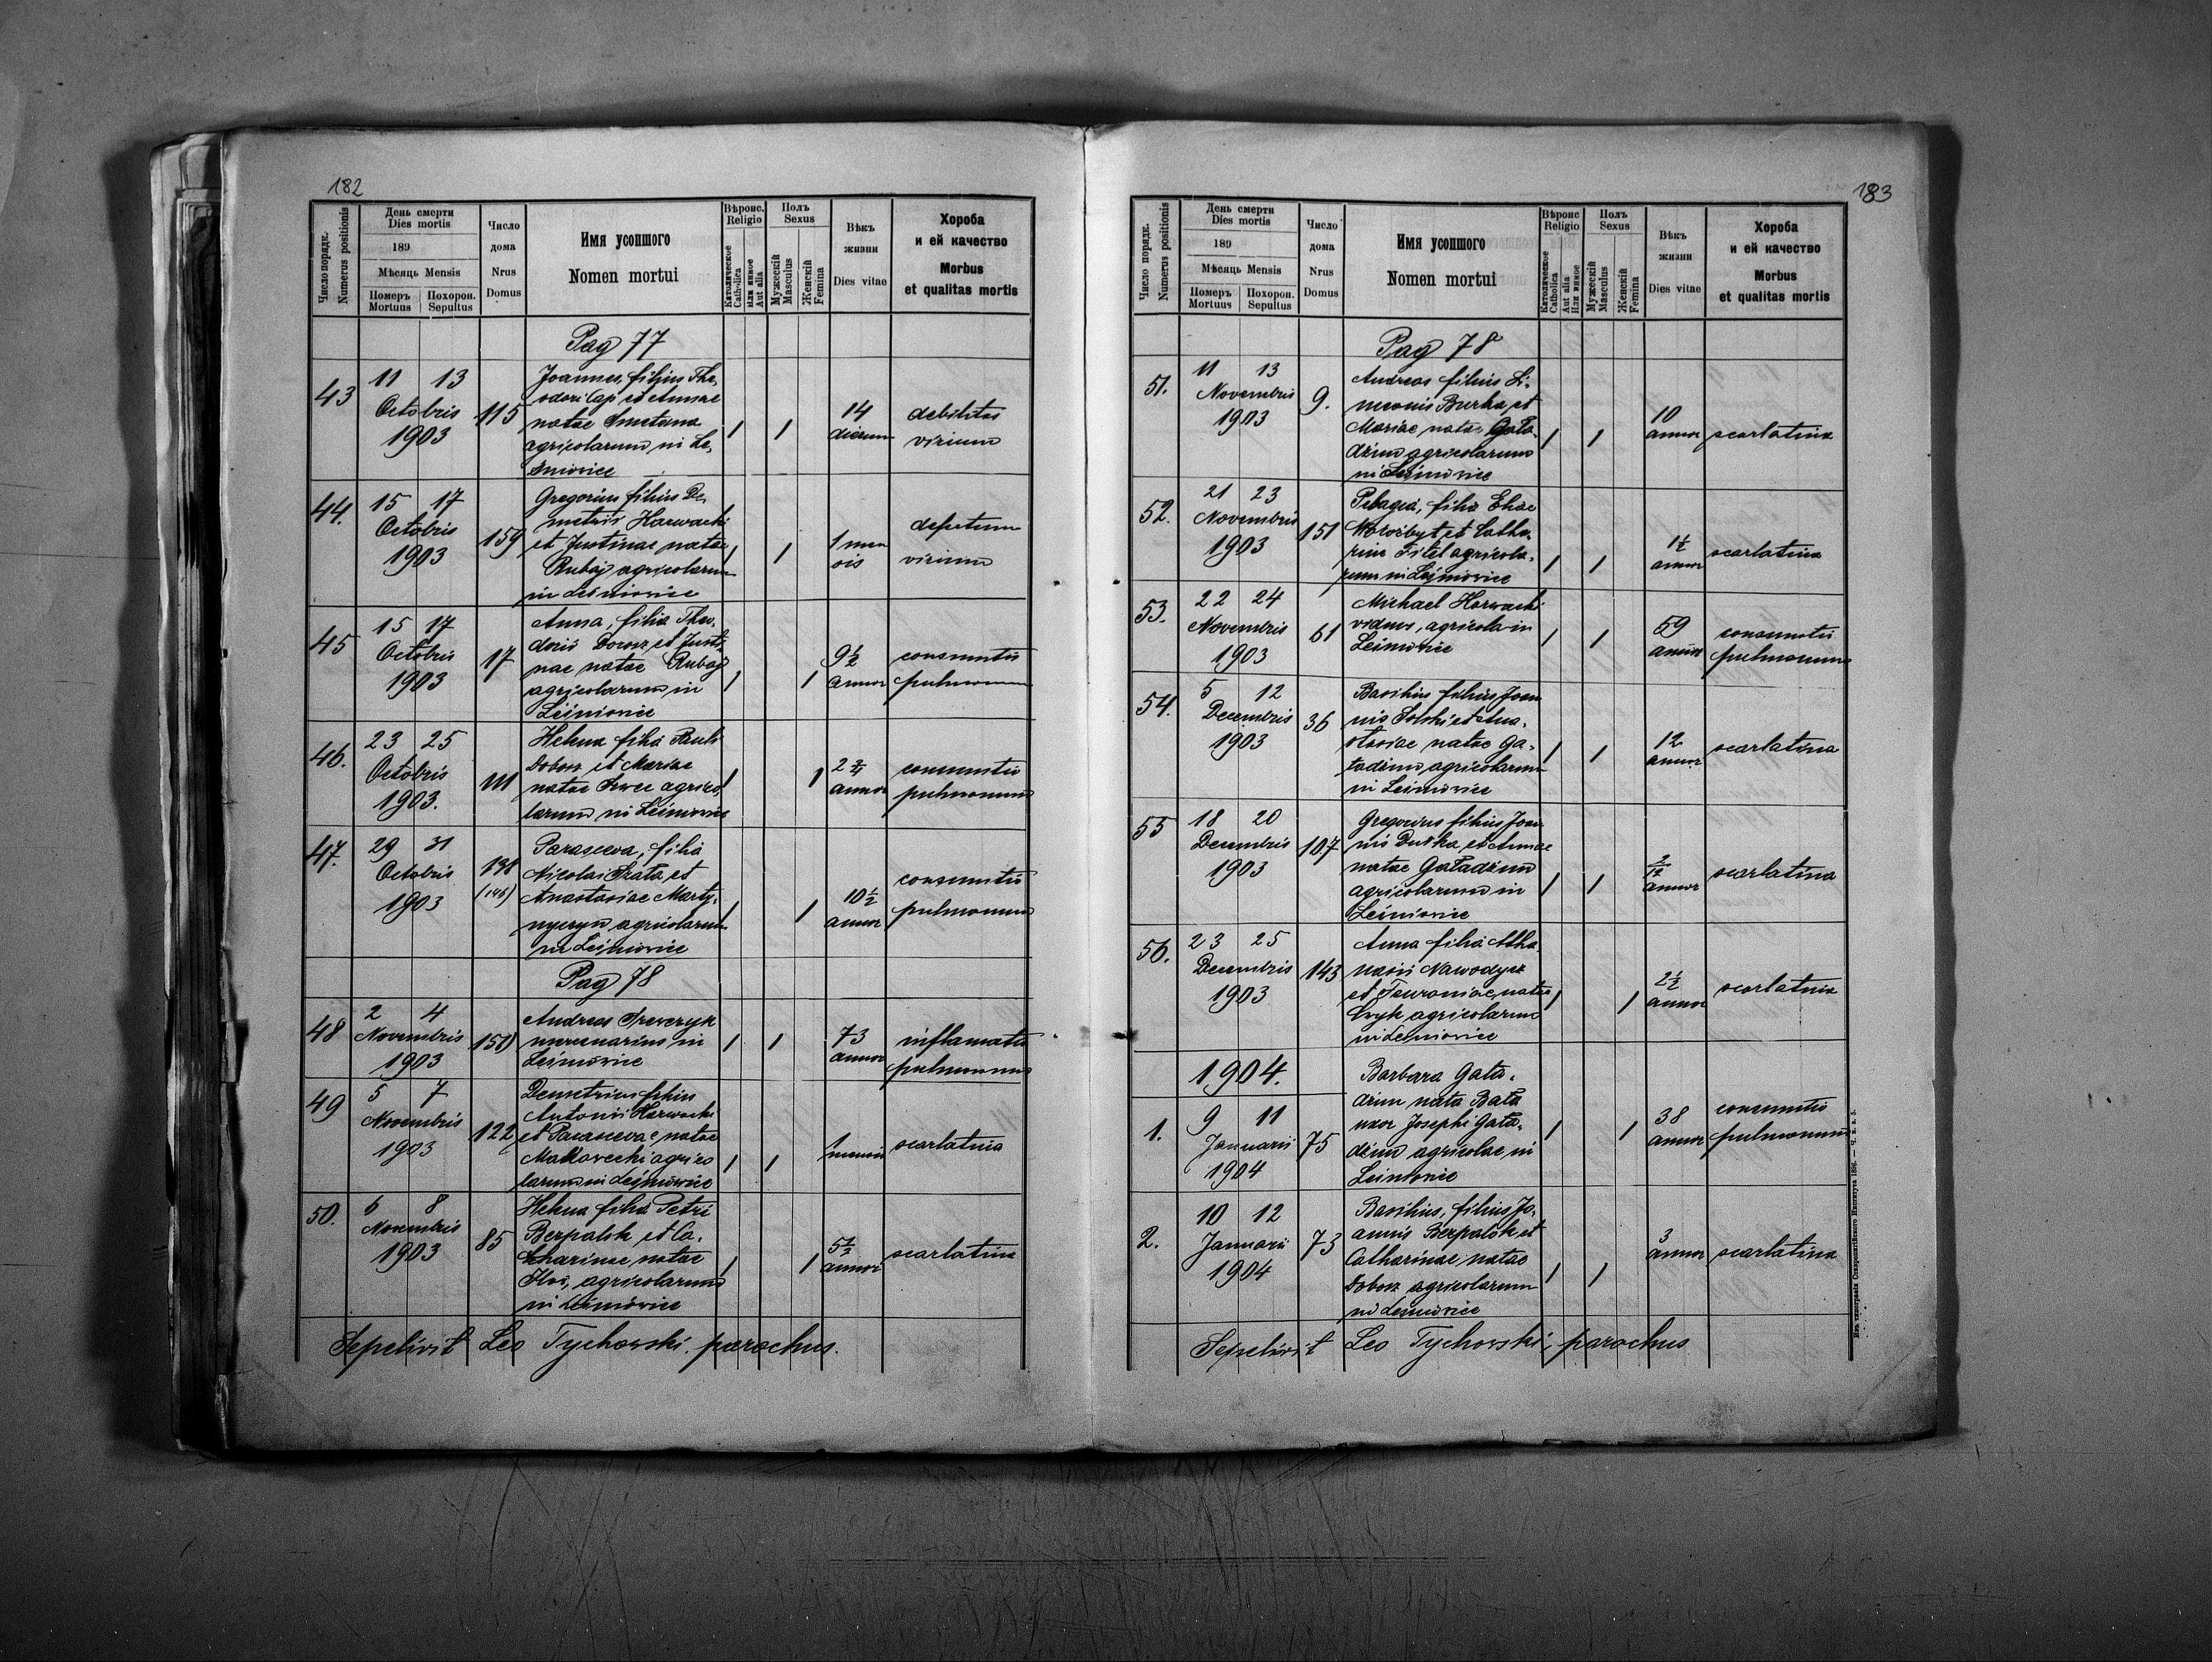 182
Число порядк.
Numerus positionis
День смерти
Dies mortis
189
Мѣсяць Mensis
Померъ
Mortuus
Похорон.
Sepultus
Число
дома
Nrus
Domus
Имя усопшого
Nomen mortui
Вѣроис.
Religio
Католическое
Catholica
или инное
Aut alia
Полъ
Sexus
Мужескій
Masculus
Женскій
Femina
Вѣкъ
жизни
Dies vitae
Хороба
и ей качество
Morbus
et qualitas mortis
Pag 77
43
11 13
Octobris
1903
115
Joannes, filius The,
odori Caj et Annae
natae Smetana
agricolarum in Le,
śniovice
1 1
14
dierum
debilitas
virium
44.
15 17
Octobris
1903
159
Gregorius filius De,
metrii Harwacki
et Justinae natae
Rubaj agricolarum
in Leśniovice
1 1
1 men
sis
defectum
virium
45
15 17
Octobris
1903
17
Anna, filia Theo,
doris Dorosz et Justi,
nae natae Rubaj
agricolarum in
Leśniovice
1 1
9½
annor
consumtio
pulmonum
46.
23 25
Octobris
1903.
111
Helena filia Pauli
Dobosz et Mariae
natae Szwec agrico,
larum in Leśniovice
1 1
2 ¾
annor
consumtio
pulmonum
47.
29 31
Octobris
1903
138
(146)
Parasceva, filia
Nicolai Trata et
Anastasiae Marty,
nyszyn agricolarum
in Leśniovice
1 1
10½
annor
consumtio
pulmonum
Pag 78
48
2 4
Novembris
1903
150)
Andreas Szewczyk
mercenarius in
Leśniovice
1 1
73
annor
inflamatio
pulmonum
49
5 7
Novembris
1903
122
Demetrius filius
Antonii Harwacki
et Parascevae natae
Makarecki agrico
larum in Leśniovice
1 1
1
mensis
scarlatina
50.
6 8
Novembris
1903
85
Helena filia Petri
Berpalok et Ca,
tharinae natae
Kłos, agricolarum
in Leśniovice
1 1
5½
annor
scarlatina
Sepelivit Leo Tychowski, parochus.
183
Число порядк.
Numerus positionis
День смерти
Dies mortis
189
Мѣсяць Mensis
Померъ
Mortuus
Похорон.
Sepultus
Число
дома
Nrus
Domus
Имя усопшого
Nomen mortui
Вѣроис
Religio
Католическое
Catholica
Aut alia
Или инное
Полъ
Sexus
Мужескій
Masculus
Женскій
Femina
Вѣкъ
жизни
Dies vitae
Хороба
и ей качество
Morbus
et qualitas mortis
Pag 78
51.
11 13
Novembris
1903
9.
Andreas filius Si,
meonis Burka et
Mariae natae Gała,
dżun agricolarum
in Leśniovice
1 1
10
annor
scarlatina
52.
21 23
Novembris
1903
151
Pelagia, filia Eliae
Wołośbyt et Catha,
rinae Fitel agricola,
rum in Leśniovice
1 1
1½
annor
scarlatina
53.
22 24
Novembris
1903
61
Michael Harwacki
viduus, agricola in
Leśniovice
1 1
59
annor
consumtio
pulmonum
54.
5 12
Decembris
1903
36
Basilius filius Joan
nis Solski et Ana,
stasiae natae Ga,
ładżun, agricolarum
in Leśniovice
1 1
12
annor
scarlatina
55
18 20
Decembris
1903
107
Gregorius filius Joan
nis Dutka et Annae
natae Gaładżun
agricolarum in
Leśniovice
1 1
2/12
annor
scarlatina
56.
23 25
Decembris
1903
143
Anna filia Atha
nasii Nawodycz
et Teuroniae natae
Cwyk agricolarum
in Leśniovice
1 1
2½
annor
scarlatina
1904.
1.
9 11
Januarii
1904
75
Barbara Gała,
dżun nata Bała
uxor Josephi Gała,
dżun agricolae in
Leśniovice
1 1
38
annor
consumtio
pulmonum
2.
10 12
Januarii
1904
73
Basilius, filius Jo,
annis Berpalok et
Catharinae natae
Dobosz agricolarum
in Leśniovice
1 1
3
annor
scarlatina
Sepelivit Leo Tychowski, parochus
Изъ типографіи Ставропигійского Института 1896.